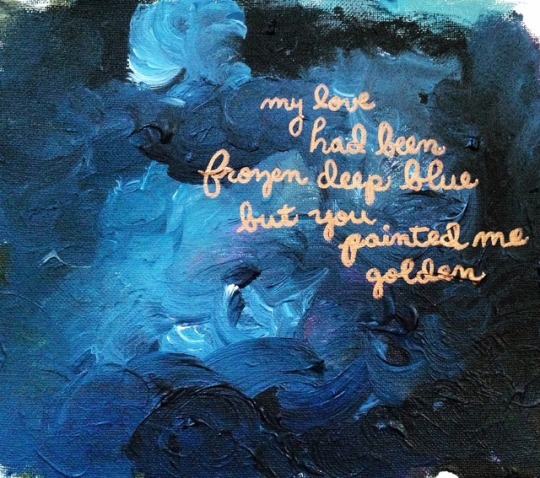 my love
had been
frozen deep blue
but you
painted me
golden